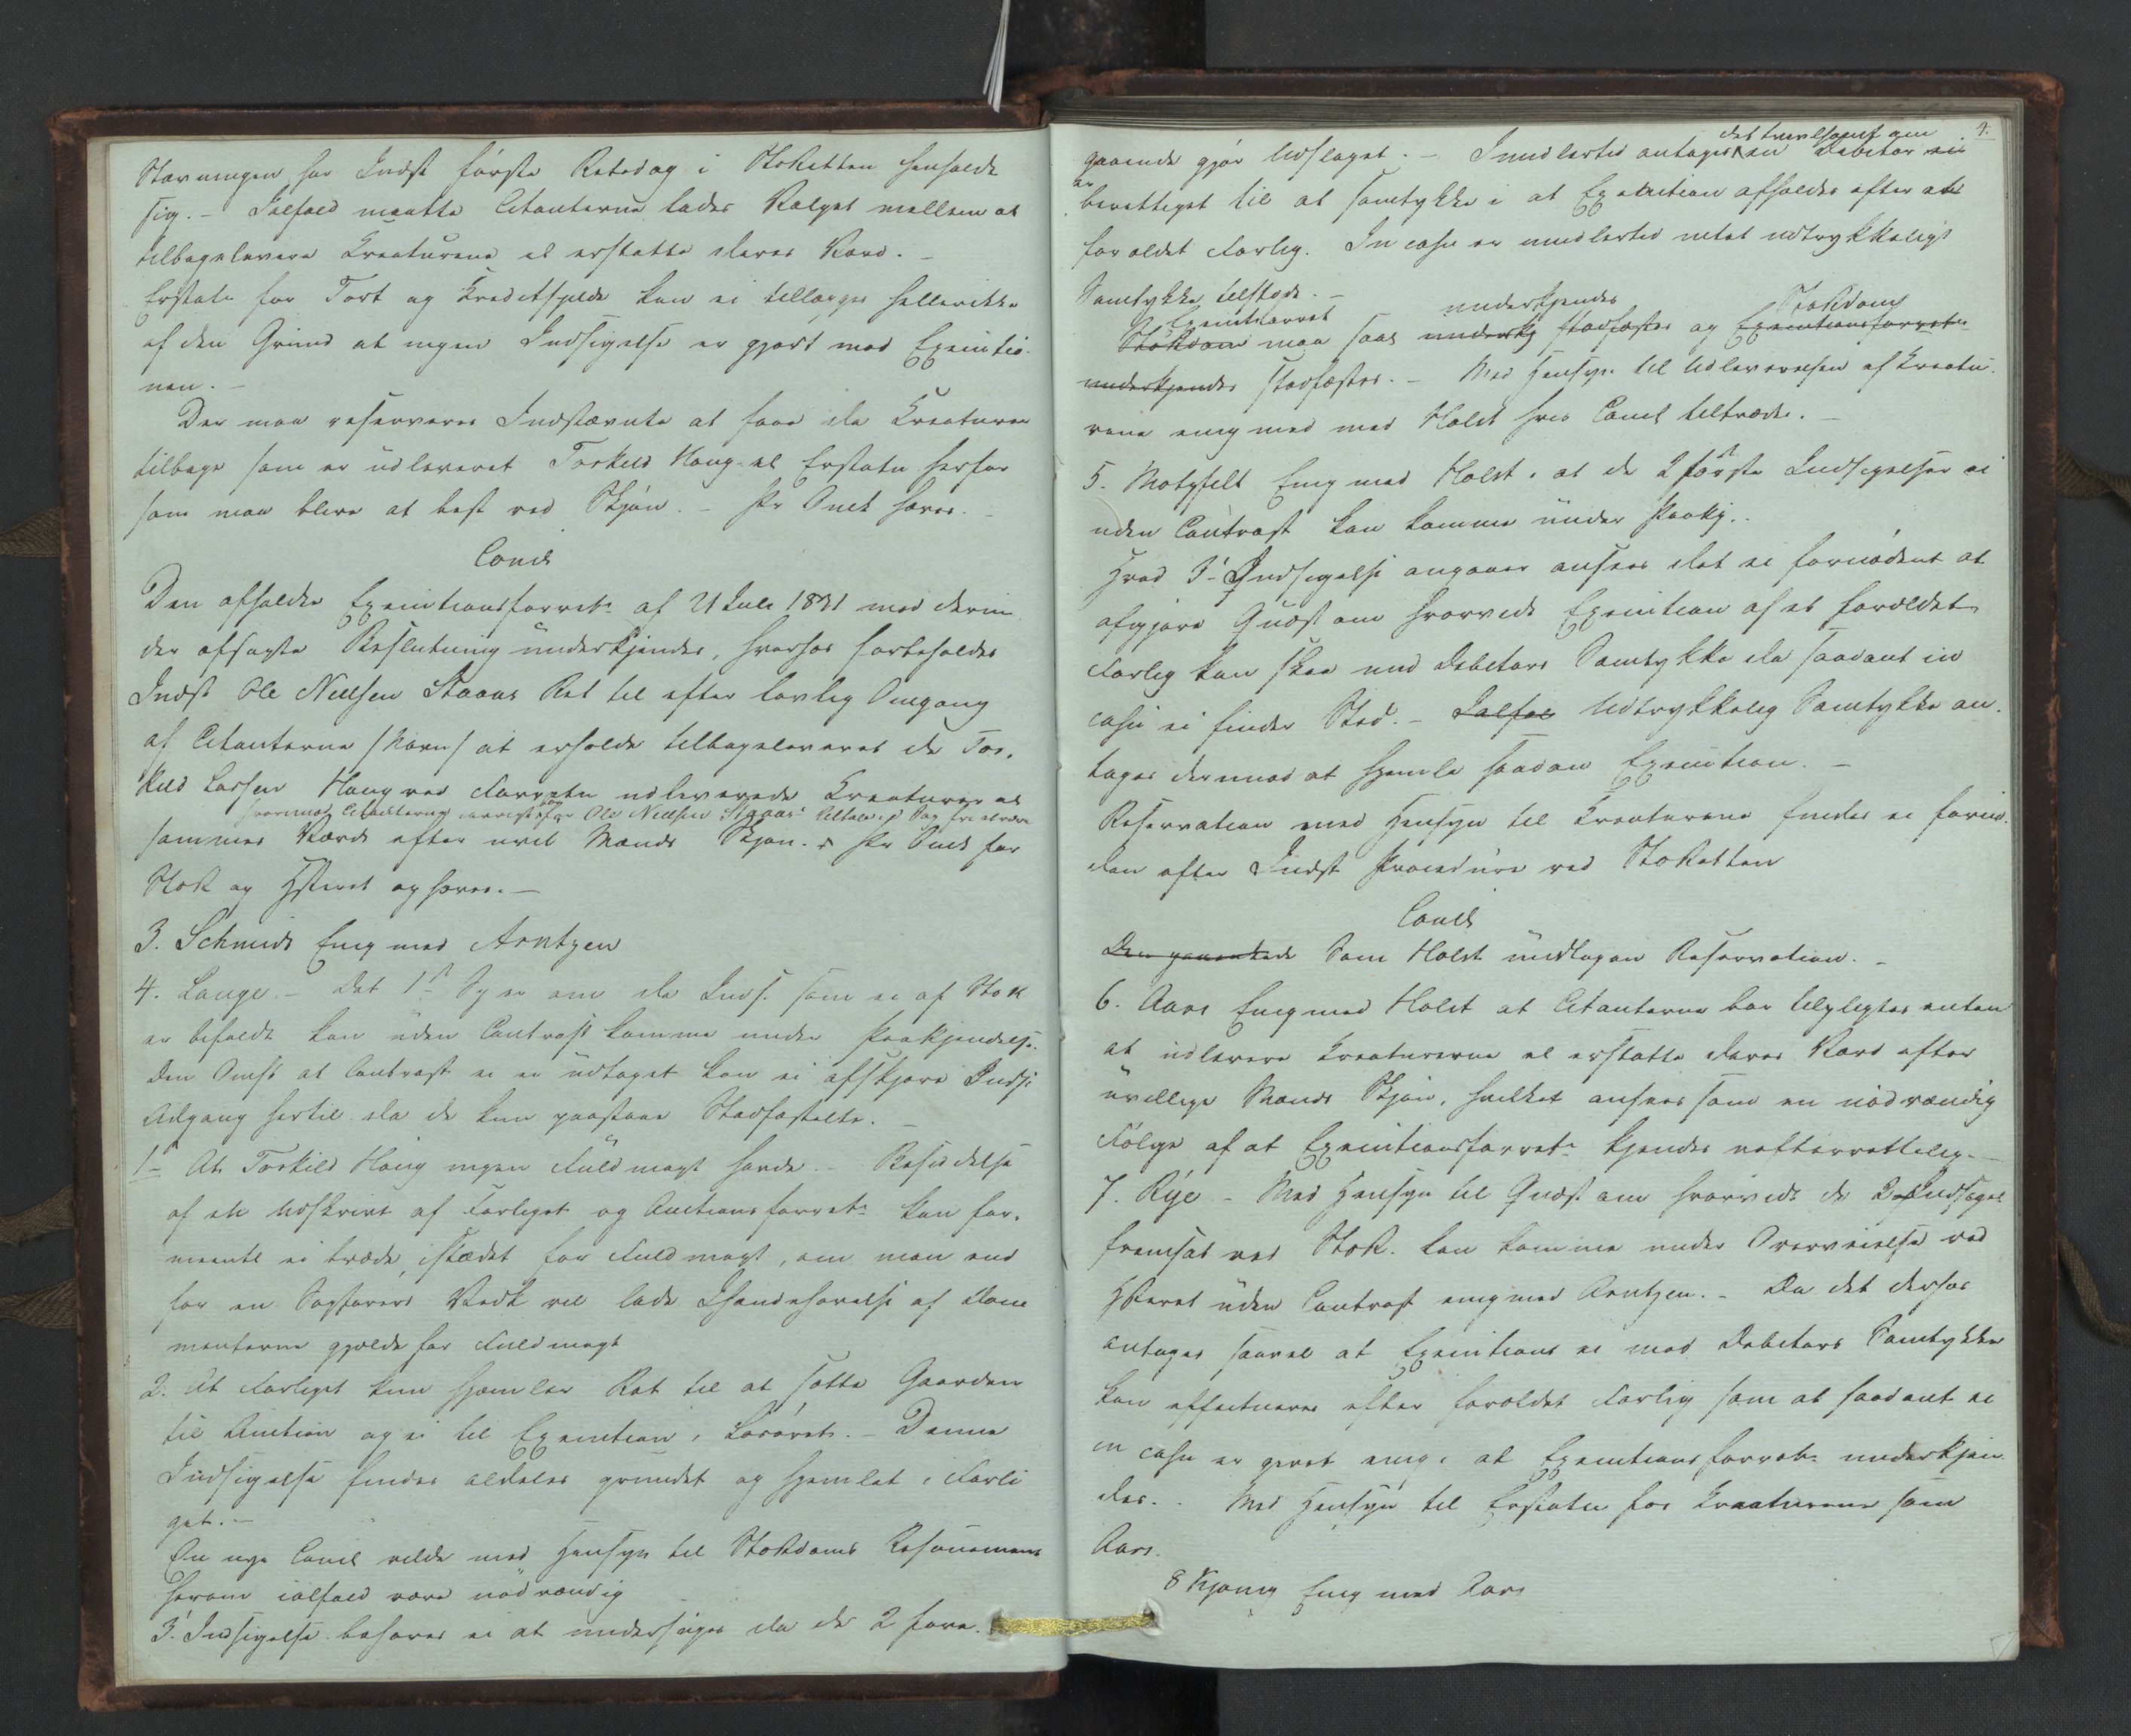 Stævningen har Indst første Retsdag i StRetten henholdt
sig. – Ialfald maatte Citanterne lades Valget mellem at
tilbagelevere Kreaturene el erstatte deres Værd. –
Erstatn for Tort og Kreditspilde kan ei tillægges hellerikke
af den Grund at ingen Indsigelse er gjort mod Executio-
nen. –
Der maa reserveres Indstævnte at faae de Kreaturer
tilbage som er udleveret Torkild Haug el Erstatn herfor
som maa blive at best ved Skjøn. – Pr Omk hæves. –
Concl
Den afholdte Executionsforretn af 21 Juli 1831 med derin
der afsagte Beslutning underkjendes, hvorhos forbeholdes
Indst Ole Nielsen Staaus Ret til efter lovlig Omgang
af Citanterne (Navn) at erholde tilbageleveret de Tor-
kild Larsen Haug ved Forretn udleverede Kreaturer el
hvorimod Citanterne forøvrigt for Ole Nielsen Staaus Tiltale i d Sag fri at være
sammes Værd efter uvil Mænds Skjøn. Pr Omk for
StR og HSteret ophæves. –
3. Schmidt Enig med Arntzen
4. Lange – Det 1ste Sp er om de Inds. som ei af StR
er befældt kan uden Contrast komme under Paakjendelse.
Den Omst at Contrast ei er udtaget kan ei afskjære Indst
Adgang hertil da de kun paastaae Stadfæstelse. –
1ste At Torkild Haug ingen Fuldmagt havde. – Besiddelse
af en Udskrivt af Forliget og Auctionsforretn kan for-
meentl ei træde istædet for Fuldmagt, om man end
for en Sagførers Vedk vil lade Ihændehavelse af Docu
menterne gjælde for Fuldmagt
2. At Forliget kun hjemler Ret til at sætte Gaarden
til Auction og ei til Execution i Løsøret. – Denne
Indsigelse findes aldeles grundet og hjemlet i Forli
get. –
En nye Concl vilde med Hensyn til StRdoms Resonement
herom ialfald være nødvændig
3. Indsigelse behøves ei at undersøges da de 2 fore-
4.
det tvivlsomt om
gaaende gjør Udslaget. – Imidlertid antages en Debitor ei
er
berettiget til at samtykke i at Execution afholdes efter et
forældet Forlig. In casu er imidlertid intet udtrykkeligt
Samtykke tilstede. –
Executionsforret underkjendes StRdom
StRdom maa saal underkj stadfæstes og Executionsforretn
underkjendes stadfæstes. – Med Hensyn til Udleverelsen af Kreatu-
rene enig med med Holst hvis Concl tiltrædes. –
5. Motzfeldt Enig med Holst, at de 2 første Indsigelser ei
uden Contrast kan komme under Paakj..
Hvad 3die Indsigelse angaaer ansees det ei fornødent at
afgjøre Qvæst om hvorvidt Execution af et forældet
Forlig kan skee med Debitors Samtykke da saadant in
casu ei finder Sted. – Ialfal Udtrykkelig Samtykke an-
tages dermod at hjemle saadan Execution. –
Reservation med Hensyn til Kreaturene findes ei fornø-
den efter Indst Procedure ved StRetten
Concl
Den paaankede Som Holst undtagen Reservation. –
6. Aars Enig med Holst at Citanterne bør tilpligtes enten
at udlevere Kreaturerne el erstatte deres Værd efter
uvillige Mænds Skjøn, hvilket ansees som en nødvændig
Følge af at Executionsforretn kjendes uefterrettelig. –
7. Rye – Med Hensyn til Qvæst om hvorvidt de 2de Indsigel
fremsat ved StR. kan komme under Overveielse ved
HSteret uden Contrast enig med Arntzen. – Da det derfor
antages saavel at Executions ei med Debitors Samtykke
kan effectueres efter forældet Forlig som at saadant ei
in casu er givet enig i at Executionsforretn underkjen
des. – Med Hensyn til Erstatn for Kreaturene som
Aars.
8 Bjerring Enig med Aars